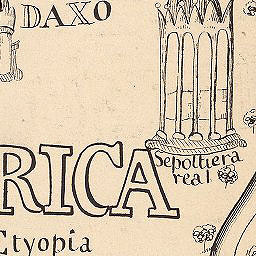 DAXO
Sepoltiera
real
RICA
Etyopia